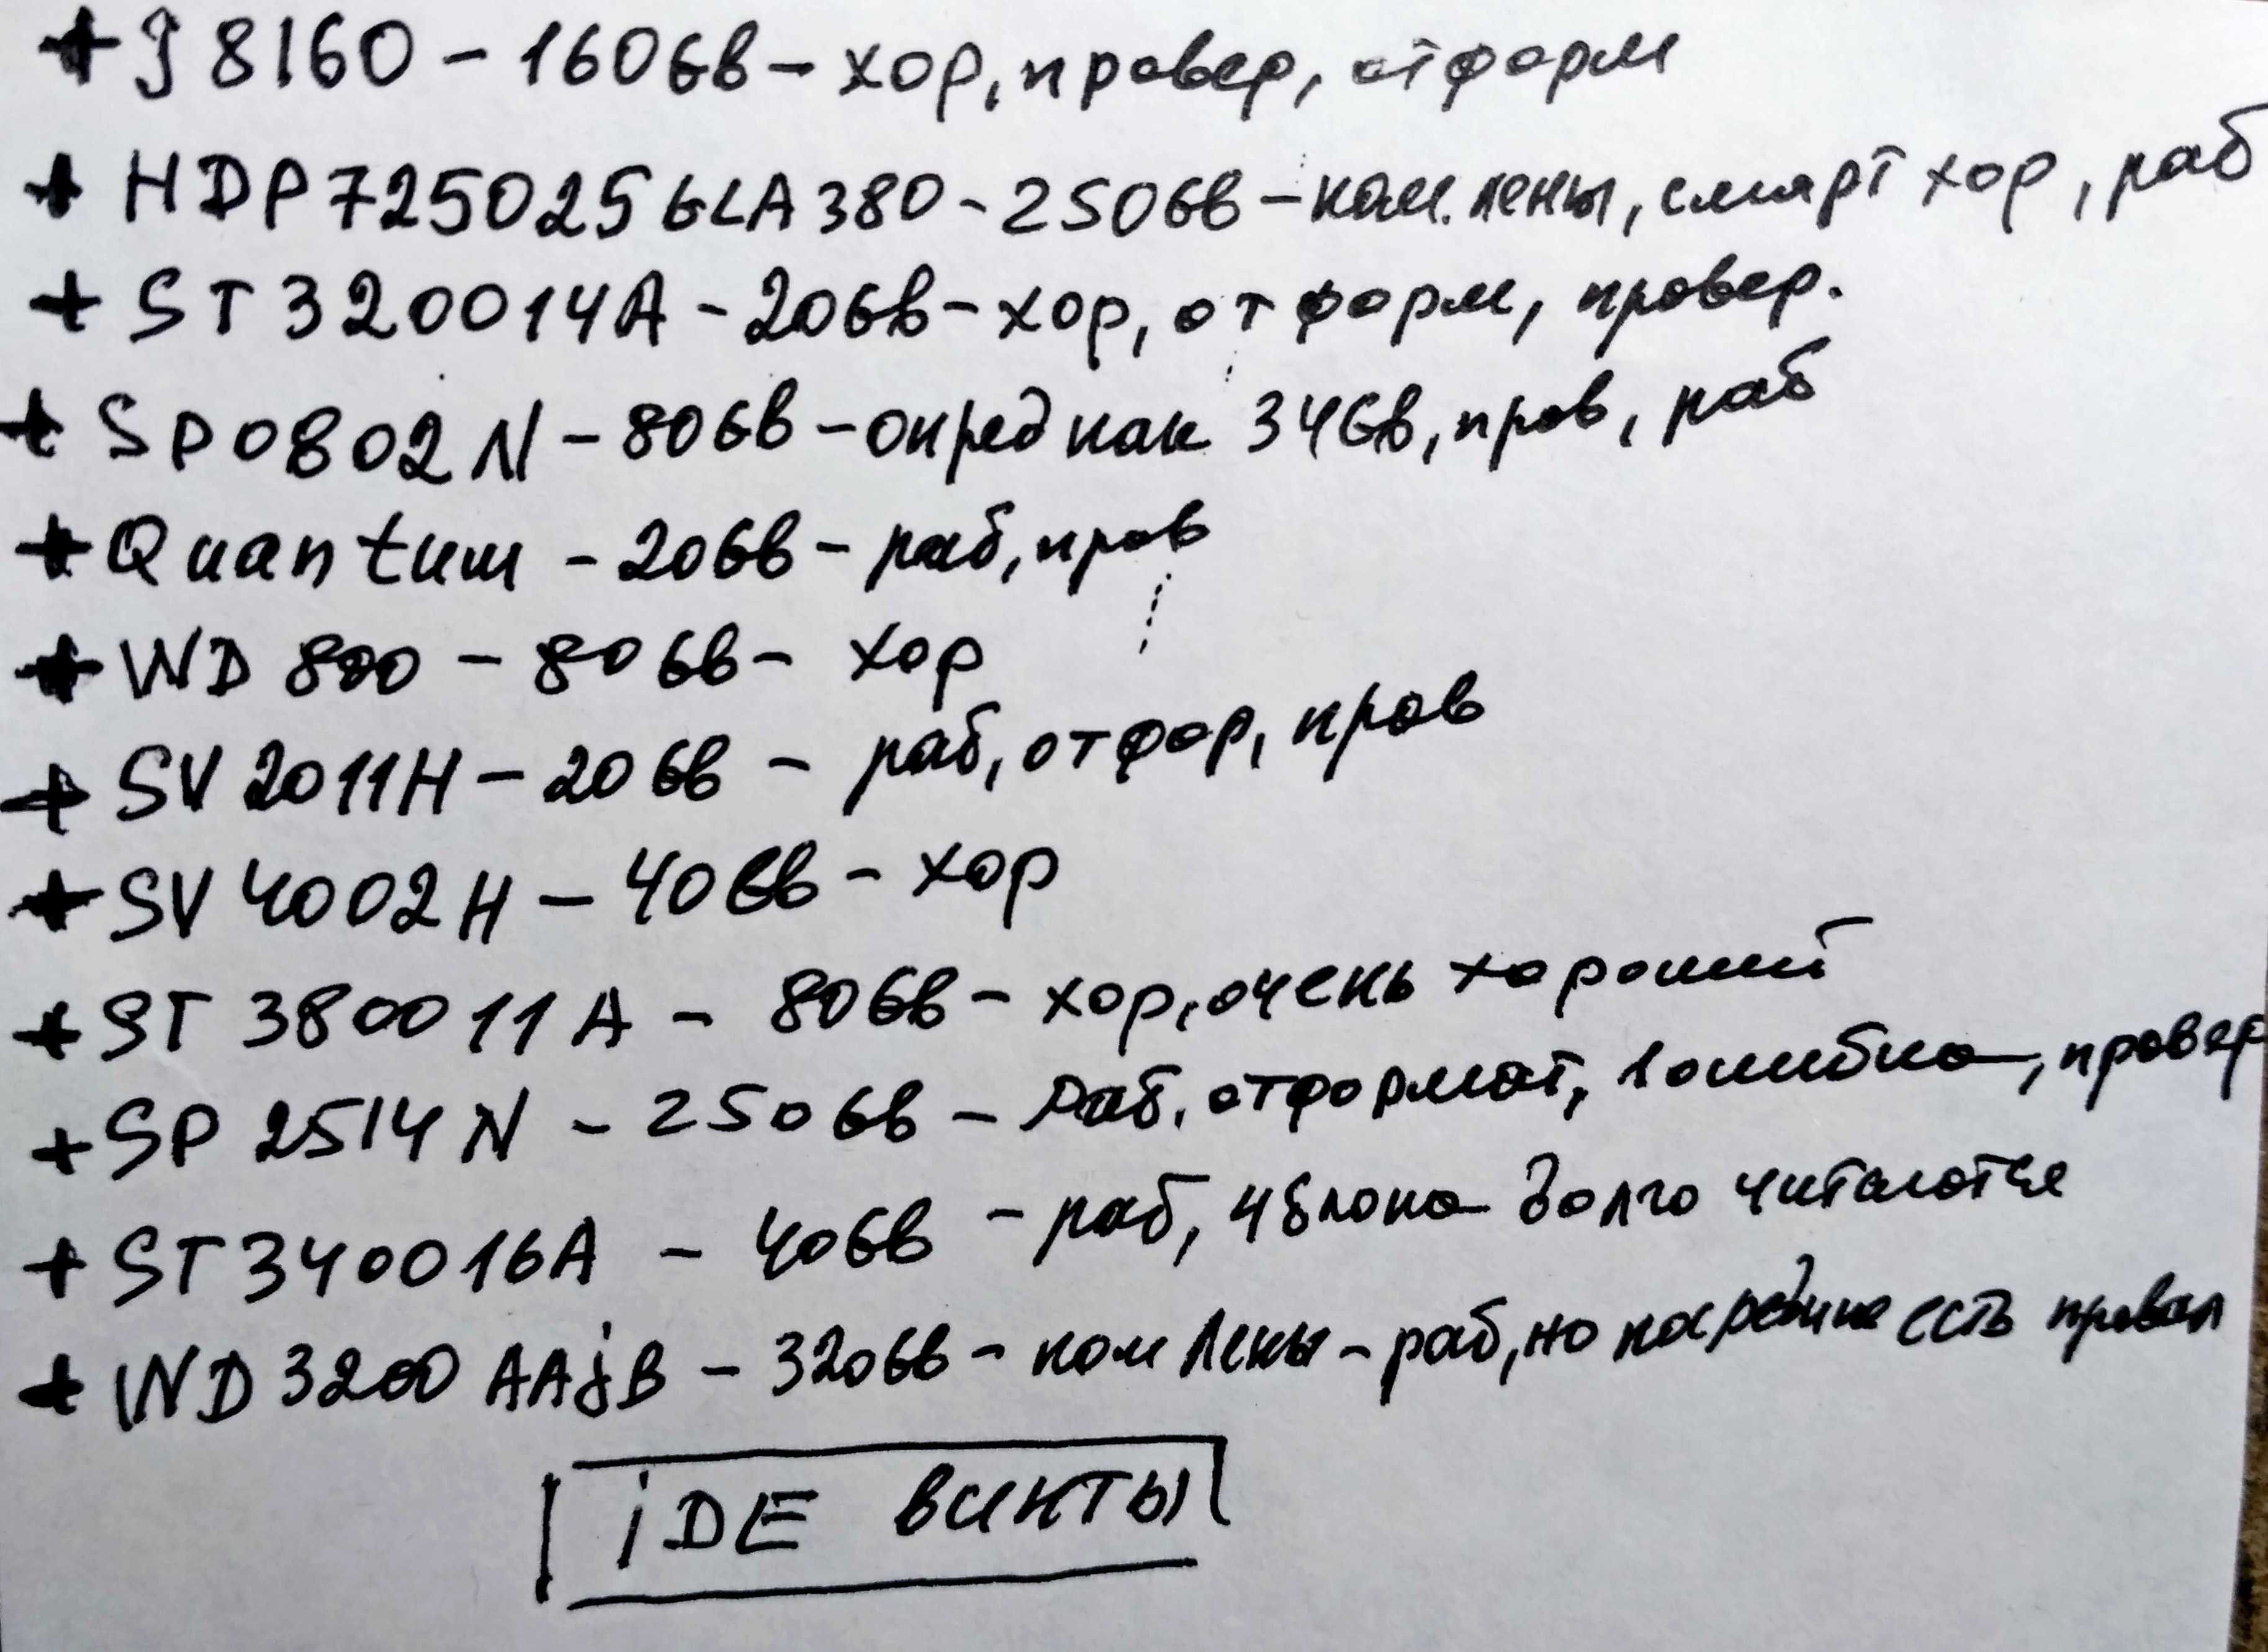 + J 8160 - 160GB - хор, провер, отформ
+ HDP725025GLA380 - 250GB - ком. лены, смарт хор, раб
+ ST320014A - 20GB - хор, отформ, провер.
+ SP0802N - 80GB - опред как 34GB, пров, раб
+ Quantum - 20GB - раб, пров
+ WD 800 - 80GB - хор
+ SV 2011H - 20GB - раб, отфор, пров
+ SV 4002H - 40GB - хор
+ ST 380011A - 80GB - хор, очень хороший
+ SP 2514N - 250GB - раб, отформат, 1 ошибка, провер
+ ST340016A - 40GB - раб, 4 блока долго читаются
+ WD3200AAjB - 320GB - ком Лены - раб, но посредине есть провал
iDE винты